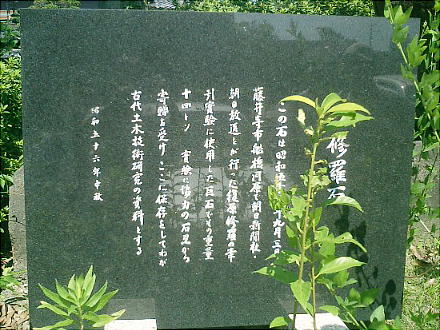 修羅石
この石は昭和
藤井寺市船橋河原で朝日新聞社
朝日放送とが行った復原修羅の牽
引実験に使用した巨石であり重量
十四トン 実験に協力の石屋から
寄贈を受け ここに保存をしてわが
古代土木技術研究の資料とする
昭和五十六年